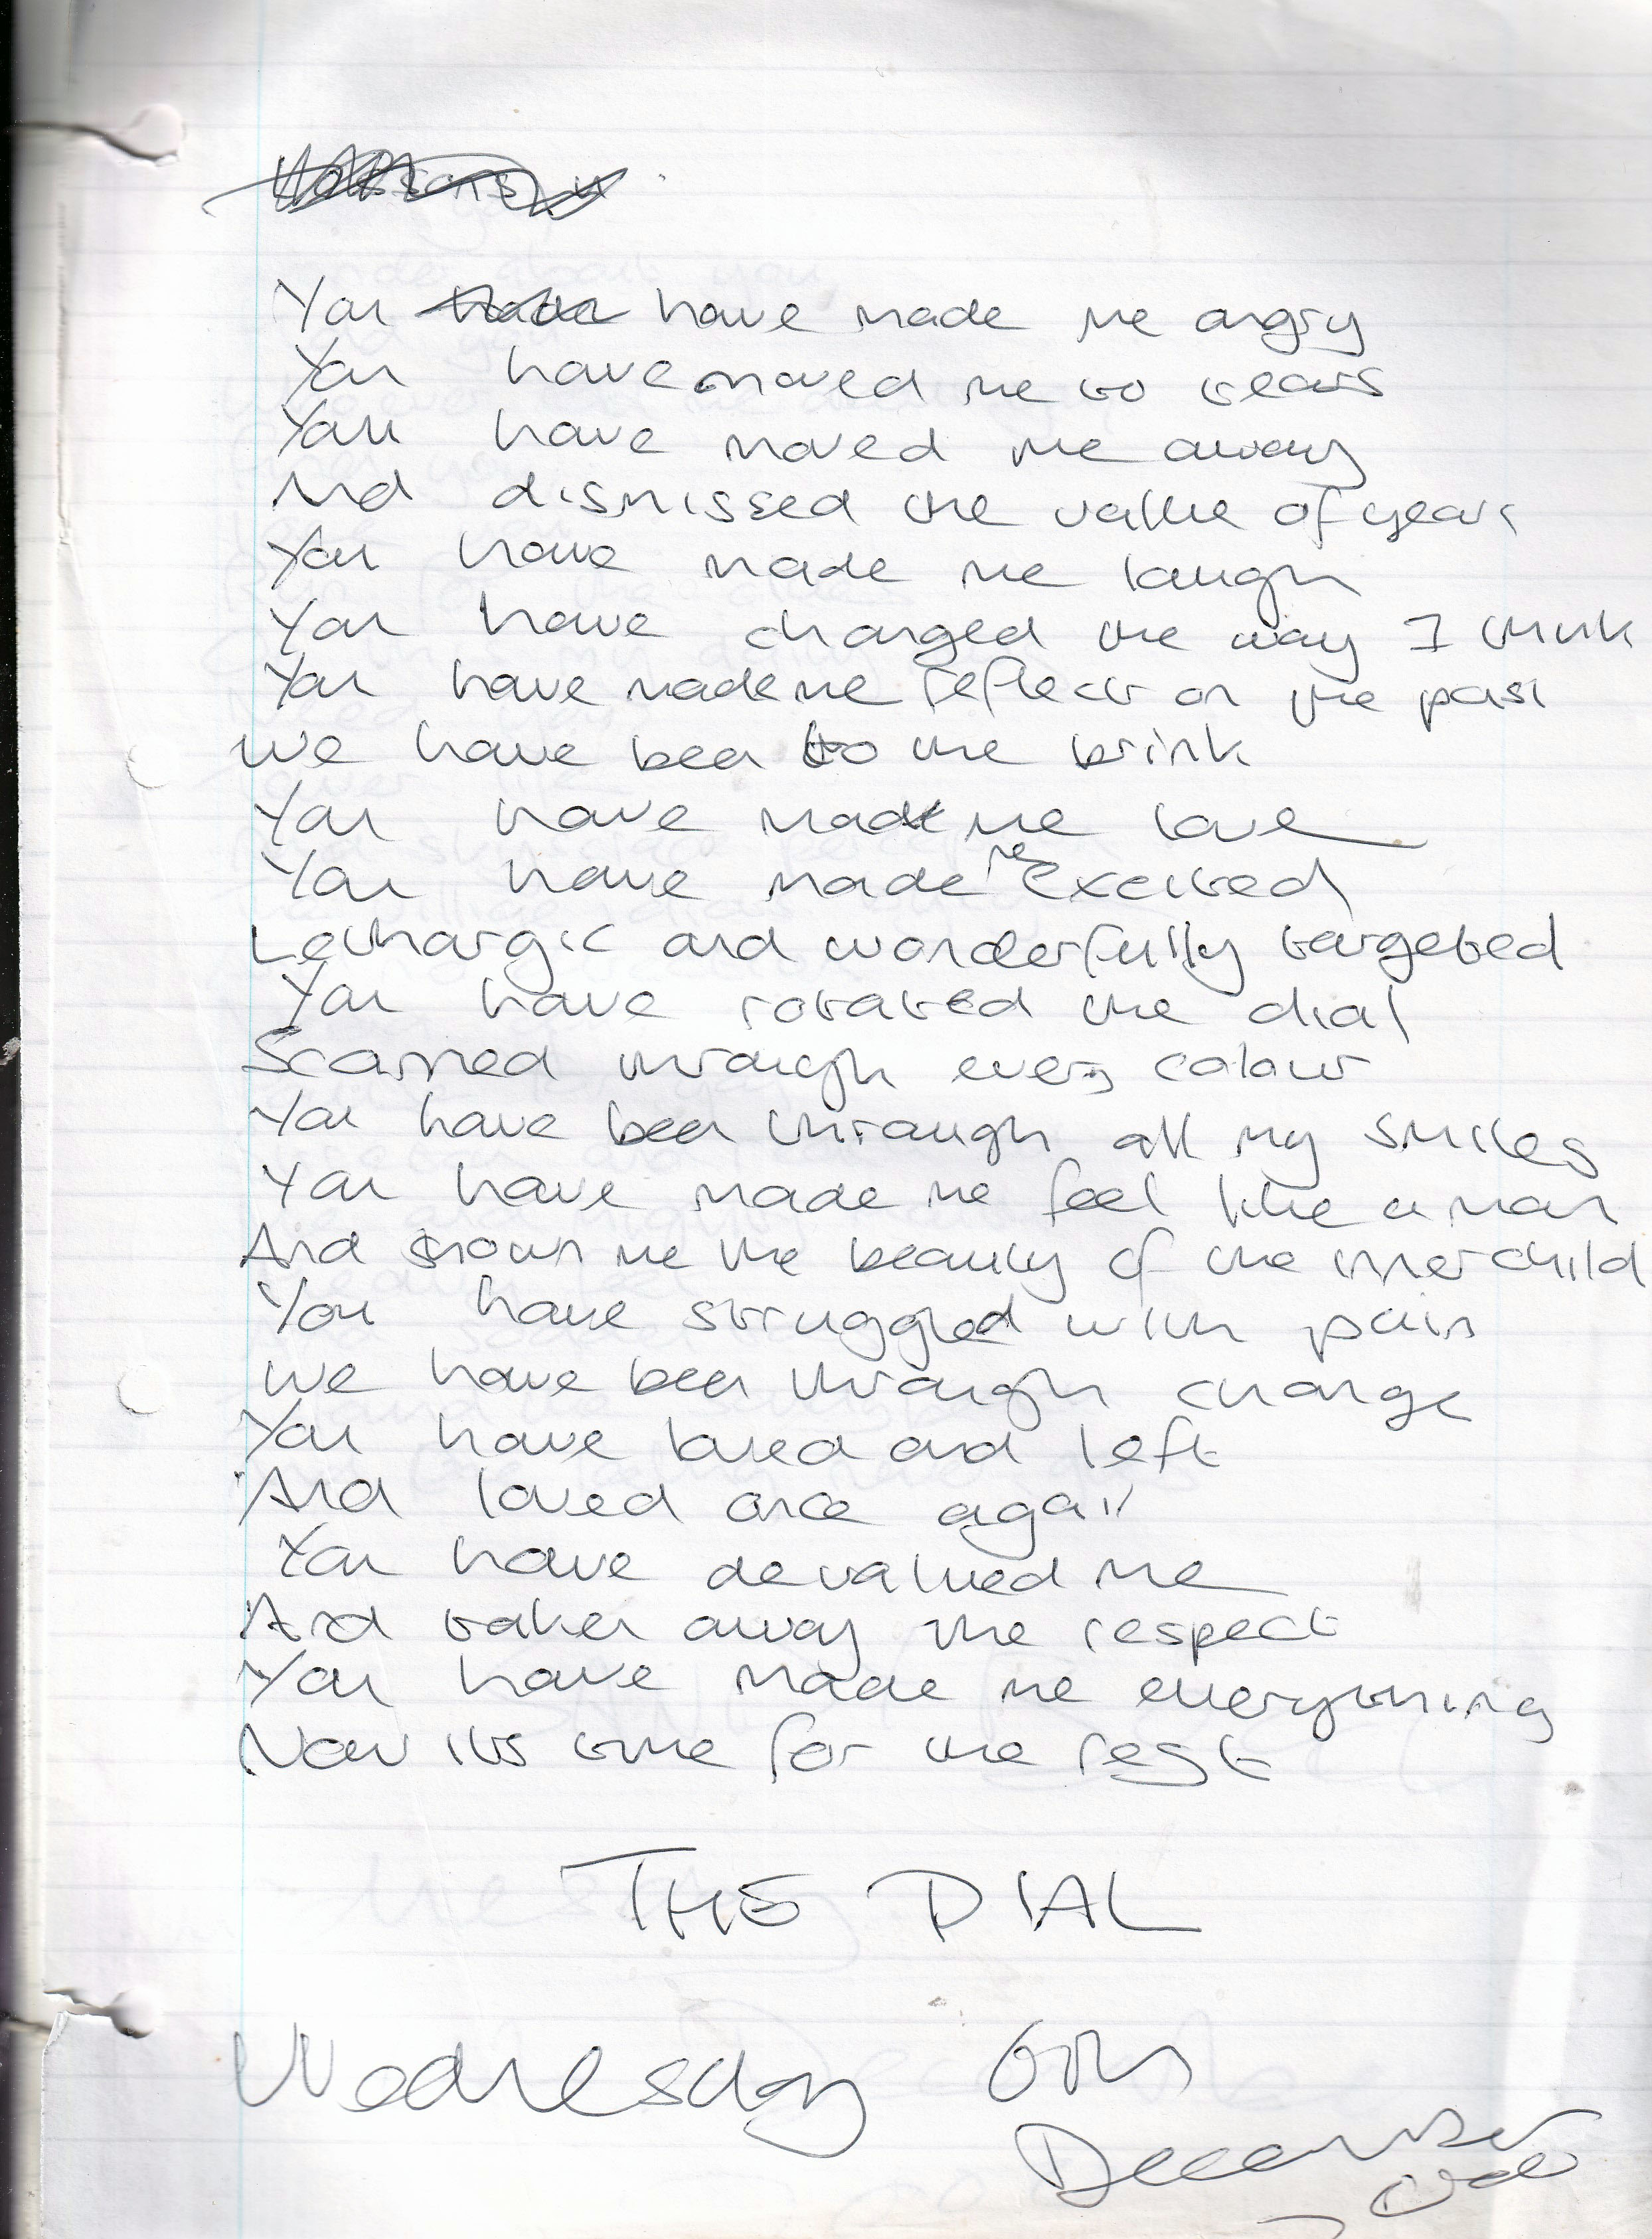 You have made me angry
You have moved me to tears
You have moved me away
And dismissed the value of years
You have made me laugh
You have changed the way I think
You have made me reflect on the past
We have been to the brink
You have made me love
You have made me exceited
Lethargic and wonderfully targeted
You have rotated the dial
Scanned through every colour
You have been through all my smiles
You have made me feel like a man
And shown me the beauty of the inner child
You have struggled with pain
We have been through change
You have loved and left
And loved once again
You have devalued me
And taken away the respect
You have made me everything
Now its time for the rest
THE DIAL
Wednesday 6th
December